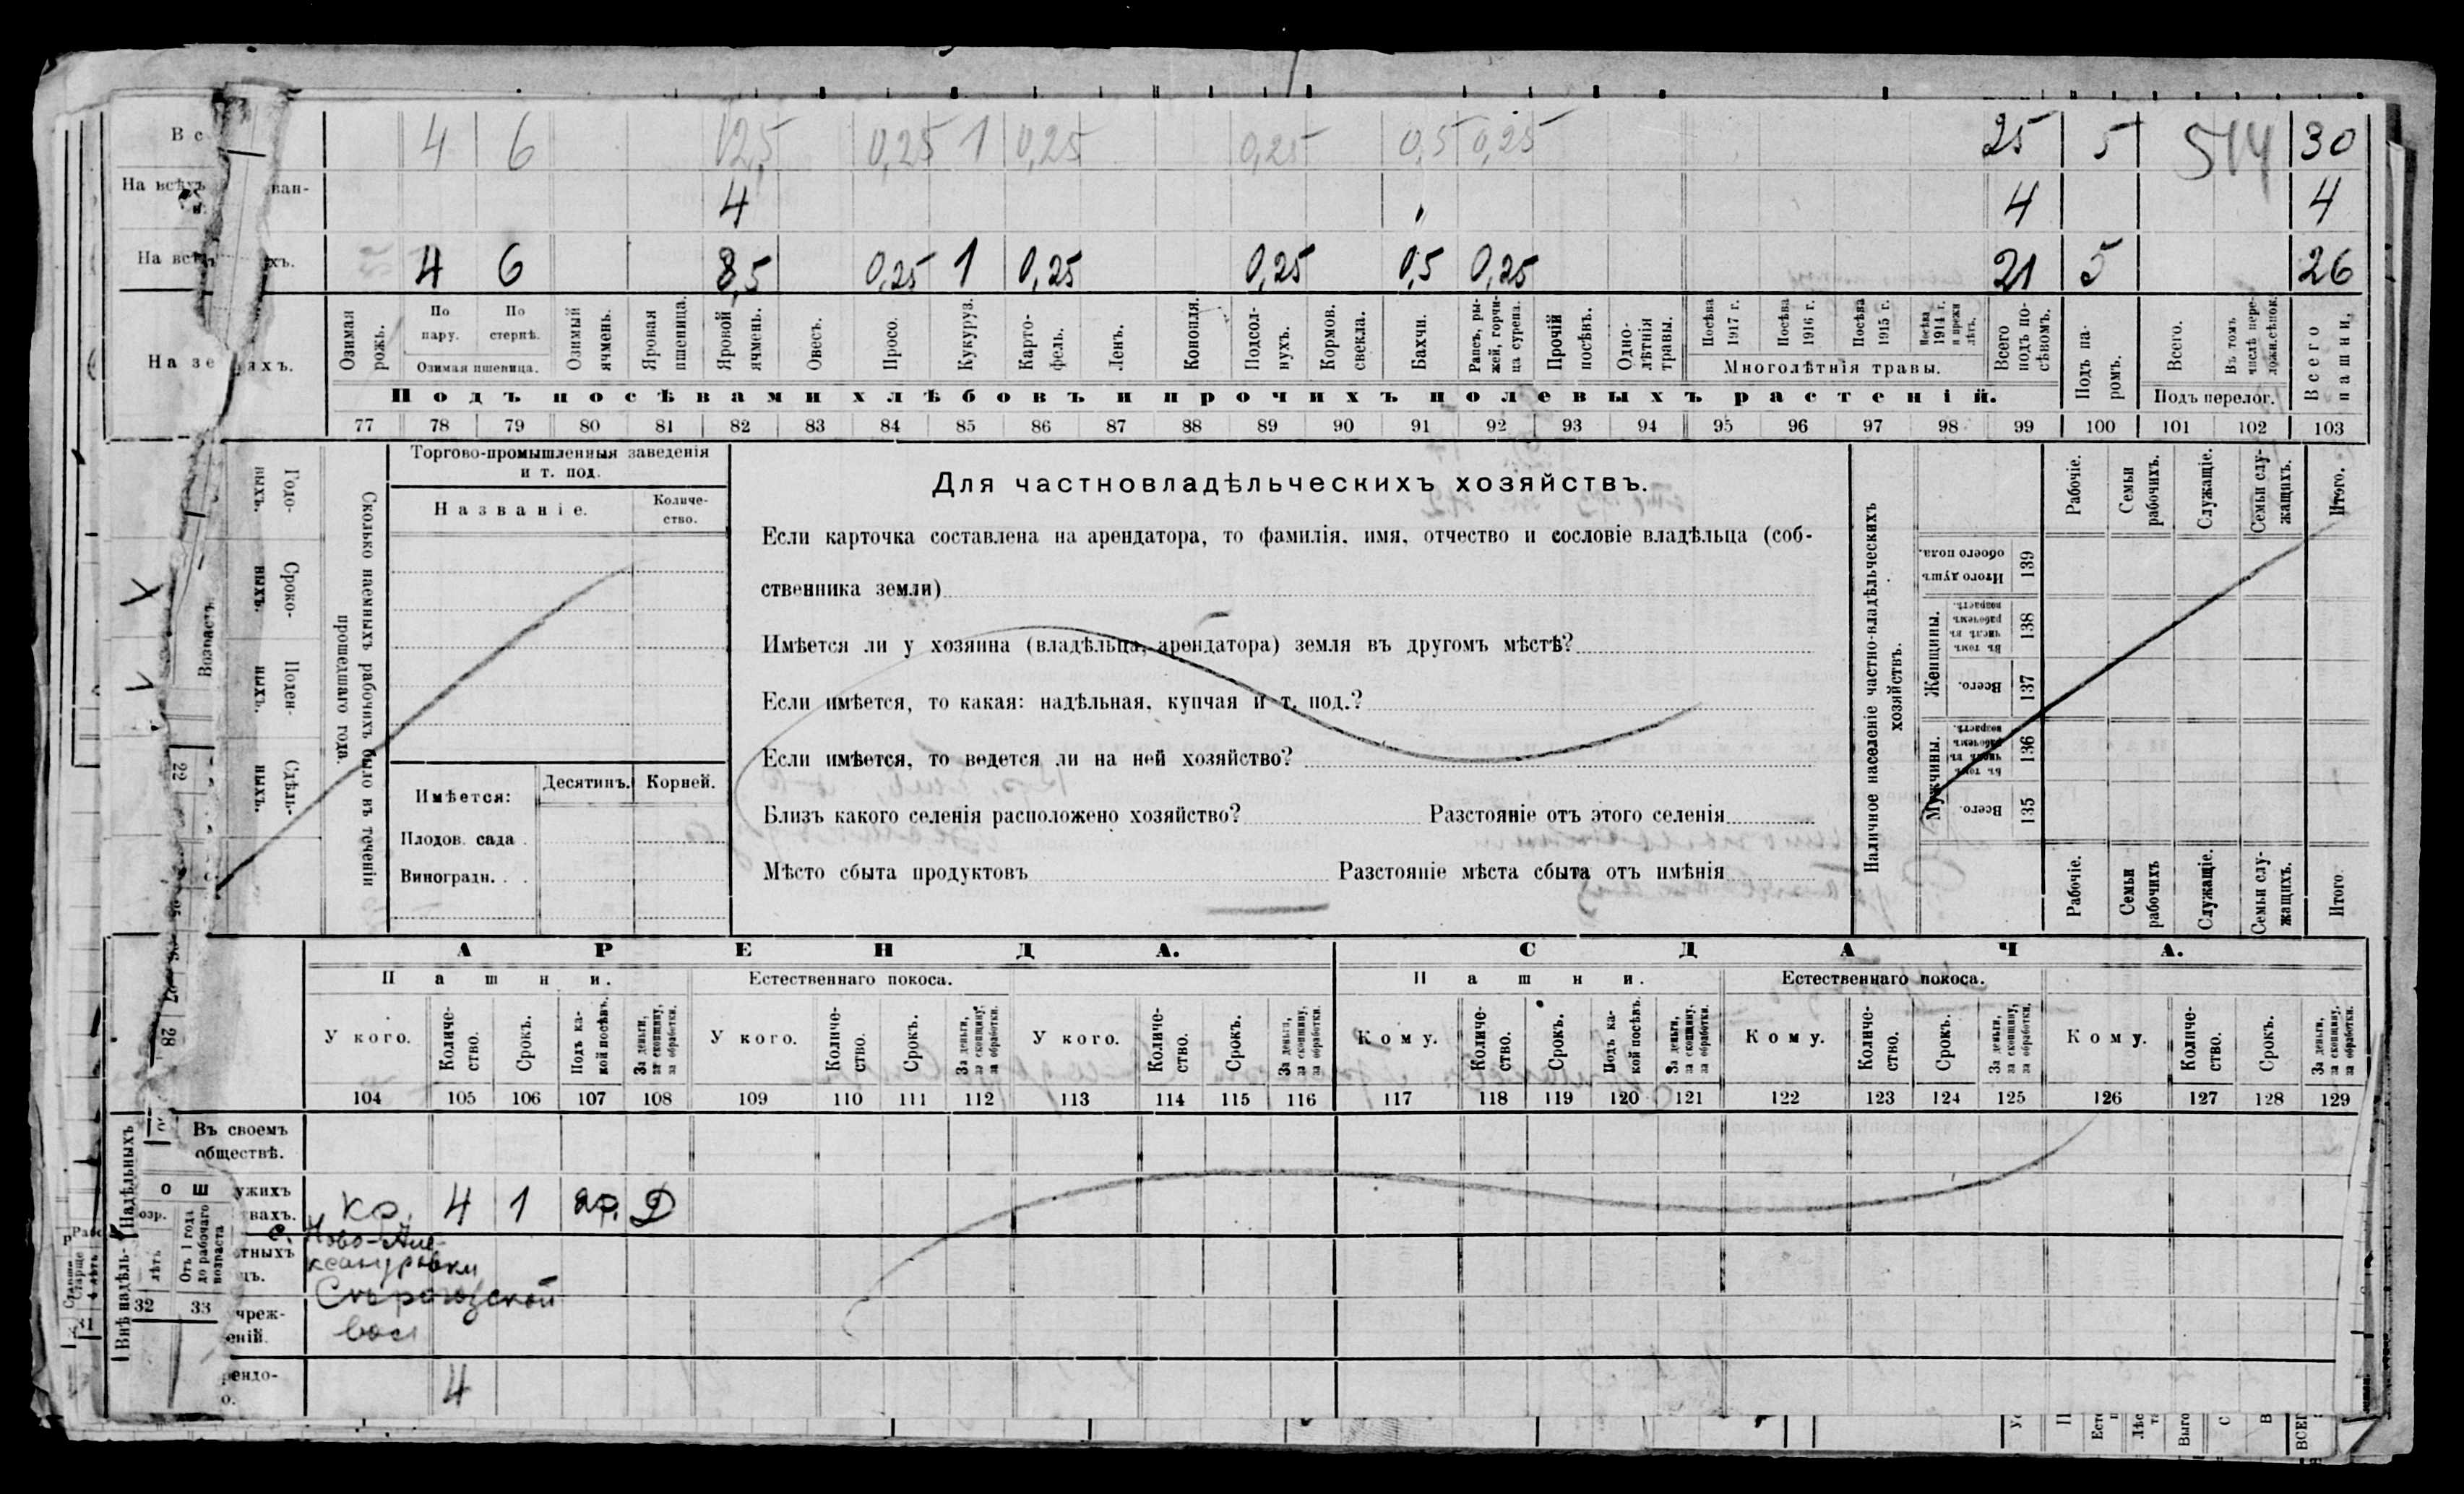 В с 4 6 12,5 0,25 1 0,25 0,25 0,5 0,25 25 5 514 30
На всѣхъ ван- 4 4 4
На всѣхъ хъ. 4 6 8,5 0,25 1 0,25 0,25 0,5 0,25 21 5 26
На зе яхъ.
Озимая рожь.
По пару.
По стернѣ.
Озимая пшеница.
Озимый ячмень.
Яровая пшеница.
Яровой ячмень.
Овесъ.
Просо.
Кукуруз.
Карто-
фель.
Ленъ.
Конопля.
Подсол-
нухъ.
Кормов.
свекла.
Бахчи.
Рапсъ, ры-
жей, горчи-
ца сурепа.
Прочій
посѣвъ.
Одно-
лѣтнія
травы.
Посѣва
1917 г.
Посѣва
1916 г.
Посѣва
1915 г.
Посѣва
1914 г.
и прежн
лѣтъ.
Многолѣтнія травы.
Всего
подъ по-
сѣвомъ.
Подъ па-
ромъ.
Всего.
Въ томъ
числѣ пере-
Подъ перелог.
Всего
пашни.
Подъ посѣвами хлѣбовъ и прочихъ полевыхъ растеній.
77 78 79 80 81 82 83 84 85 86 87 88 89 90 91 92 93 94 95 96 97 98 99 100 101 102 103
Возрастъ.
22
28
Годо-
ныхъ.
Сроко-
ныхъ.
Поден-
ныхъ.
Сдѣль-
ныхъ.
Сколько наемныхъ рабочихъ было въ теченіи
прошедшаго года.
Торгово-промышленныя заведенія
и т. под.
Названіе.
Количе-
ство.
Имѣется:
Десятинъ.
Корней.
Плодов. сада
Виноградн.
Для частновладѣльческихъ хозяйствъ.
Если карточка составлена на арендатора, то фамилія, имя, отчество и сословіе владѣльца (соб-
ственника земли)
Имѣется ли у хозяина (владѣльца, арендатора) земля въ другомъ мѣстѣ?
Если имѣется, то какая: надѣльная, купчая и т. под.?
Если имѣется, то ведется ли на ней хозяйство?
Близъ какого селенія расположено хозяйство? Разстояніе отъ этого селенія
Мѣсто сбыта продуктовъ Разстояніе мѣста сбыта отъ имѣнія
Наличное населеніе частно-владѣльческихъ
хозяйствъ.
Рабочіе.
Семьи
рабочихъ.
Служащіе.
Семьи слу-
жащихъ.
Итого.
Итого душъ
обоего пола.
139
Женщины.
Въ томъ
числѣ въ
рабочемъ
возрастѣ.
138
Всего.
137
Мужчины.
Въ томъ
числѣ въ
рабочемъ
возрастѣ.
136
Всего.
135
Рабочіе.
Семьи
рабочихъ
Служащіе.
Семьи слу-
жащихъ.
Итого.
АРЕНДА. СДАЧА.
Пашни. Естественнаго покоса. Пашни. Естественнаго покоса.
У кого.
Количе-
ство.
Срокъ.
Подъ ка-
кой посѣвъ.
За деньги,
за скопщину,
за обработки.
У кого.
Количе-
ство.
Срокъ.
За деньги,
за скопщину,
за обработки.
У кого.
Количе-
ство.
Срокъ.
За деньги,
за скопщину,
за обработки.
Кому.
Количе-
ство.
Срокъ.
Подъ ка-
кой посѣвъ.
За деньги,
за скопщину,
за обработки.
Кому.
Количе-
ство.
Срокъ.
За деньги,
за скопщину,
за обработки.
Кому.
Количе-
ство.
Срокъ.
За деньги,
за скопщину,
за обработки.
104 105 106 107 108 109 110 111 112 113 114 115 116 117 118 119 120 121 122 123 124 125 126 127 128 129
Надѣльныхъ
Внѣ надѣль-
Въ своемъ
обществѣ.
о ш
ужихъ
вахъ.
кр. 4 1 яр. Д
с. Ново-Але-
ксандровки
Сѣрогозской
вол
озр.
лѣтъ
Отъ 1 года
до рабочаго
возраста
32 33
31
тныхъ
цъ.
чреж-
еній.
рендо-
о.
4